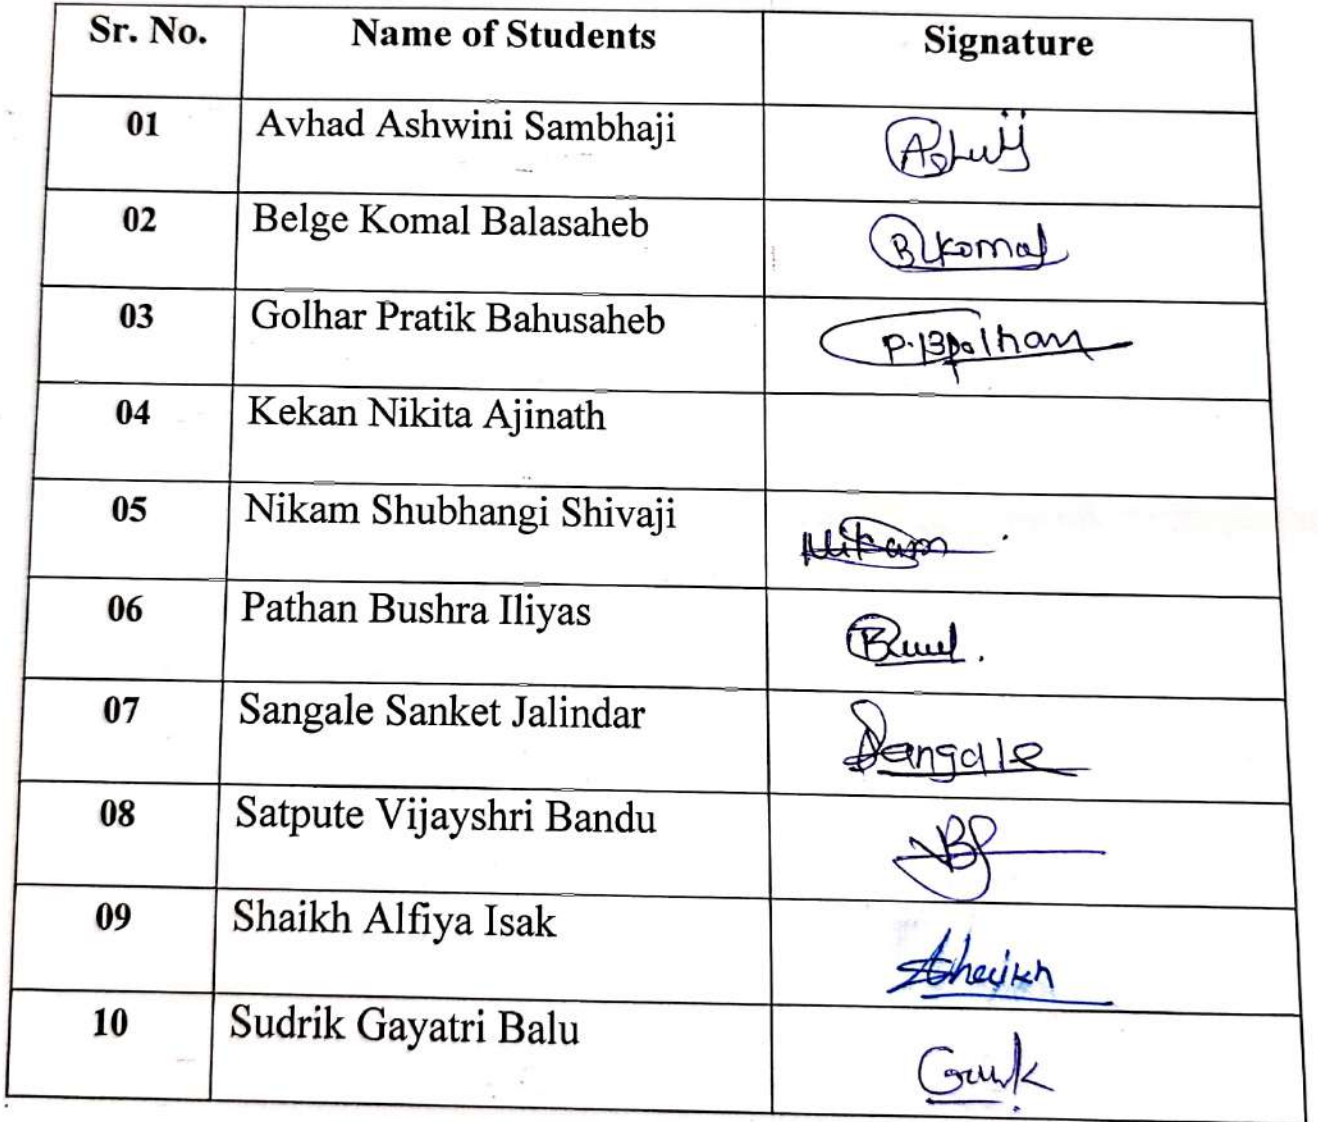 Sr. No. Name of Students Signature
01 Avhad Ashwini Sambhaji
02 Belge Komal Balasaheb Bkomal
03 Golhar Pratik Bahusaheb
04 Kekan Nikita Ajinath
05 Nikam Shubhangi Shivaji Nikam
06 Pathan Bushra Iliyas
07 Sangale Sanket Jalindar Sangale
08 Satpute Vijayshri Bandu
09 Shaikh Alfiya Isak
10 Sudrik Gayatri Balu